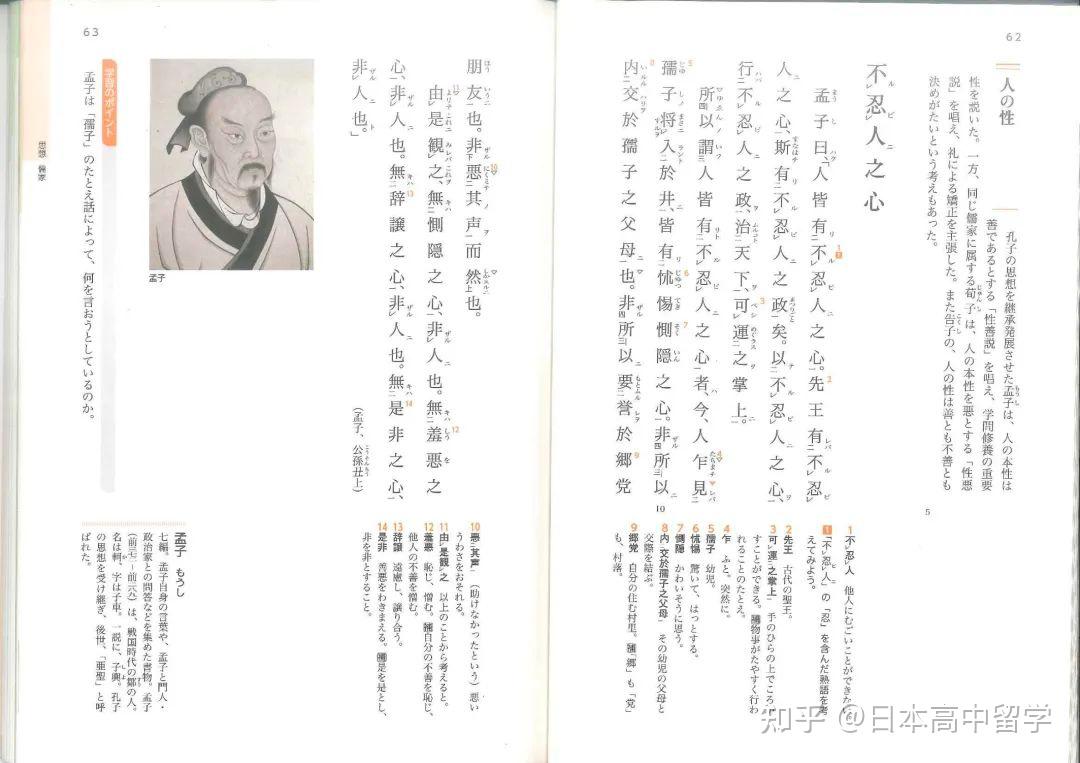 62
人の性
孔子の思想を継承発展させた孟子は、人の本性は
善であるとする「性善説」を唱え、学問修養の重要
性を説いた。一方、同じ儒家に属する荀子は、人の本性を悪とする「性悪
説」を唱え、礼による矯正を主張した。また告子の、人の性は善とも不善とも
決めがたいという考えもあった。
不忍人之心
孟子曰、「人皆有不忍人之心。先王有不忍
人之心、斯有不忍人之政矣。以不忍人之心、
行不忍人之政、治天下、可運之掌上。
所以謂人皆有不忍人之心者、今、人乍見
孺子将入於井、皆有怵惕惻隠之心。非所以
内交於孺子之父母也。非所以要誉於郷党
5
10
1 不忍人 他人にむごいことができない
1 「不忍人」の「忍」を含んだ熟語を考
えてみよう。
2 先王 古代の聖王。
3 可運之掌上 手のひらの上でころ
すことができる。物事がたやすく行わ
れることのたとえ。
4 乍 ふと。突然に。
5 孺子 幼児。
6 怵惕 驚いて、はっとする。
7 惻隠 かわいそうに思う。
8 内交於孺子之父母 その幼児の父母と
交際を結ぶ。
9 郷党 自分の住む村里。「郷」も「党」
も、村落。
63
朋友也。非悪其声而然也。
由是観之、無惻隠之心、非人也。無羞悪之
心、非人也。無辞譲之心、非人也。無是非之心、
非人也。」
（孟子、公孫丑上）
孟子
学習のポイント
孟子は「孺子」のたとえ話によって、何を言おうとしているのか。
思想 儒家
10 悪其声 （助けなかったという）悪い
うわさをおそれる。
11 由是観之 以上のことから考えると。
12 羞悪 恥じ、憎む。自分の不善を恥じ、
他人の不善を憎む。
13 辞譲 遠慮し、譲り合う。
14 是非 善悪をわきまえる。是を是とし、
非を非とすること。
孟子 もうし
七編。孟子自身の言葉や、孟子と門人・
政治家との問答などを集めた書物。孟子
は、戦国時代の鄒の人。
名は軻、字は子車。一説に、子輿。孔子
の思想を受け継ぎ、後世、「亜聖」と呼
ばれた。
知乎 @日本高中留学